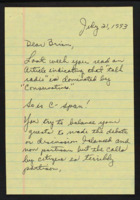 July 21, 1993
Dear Brian,
Last week you read an
Article indicating that talk
radio is dominated by
"Conservatives".
So is C-Span!
You try to balance your
guests to make the debate
or discussion balanced and
non partisan but the calls
by citizens is terribly
partisan.